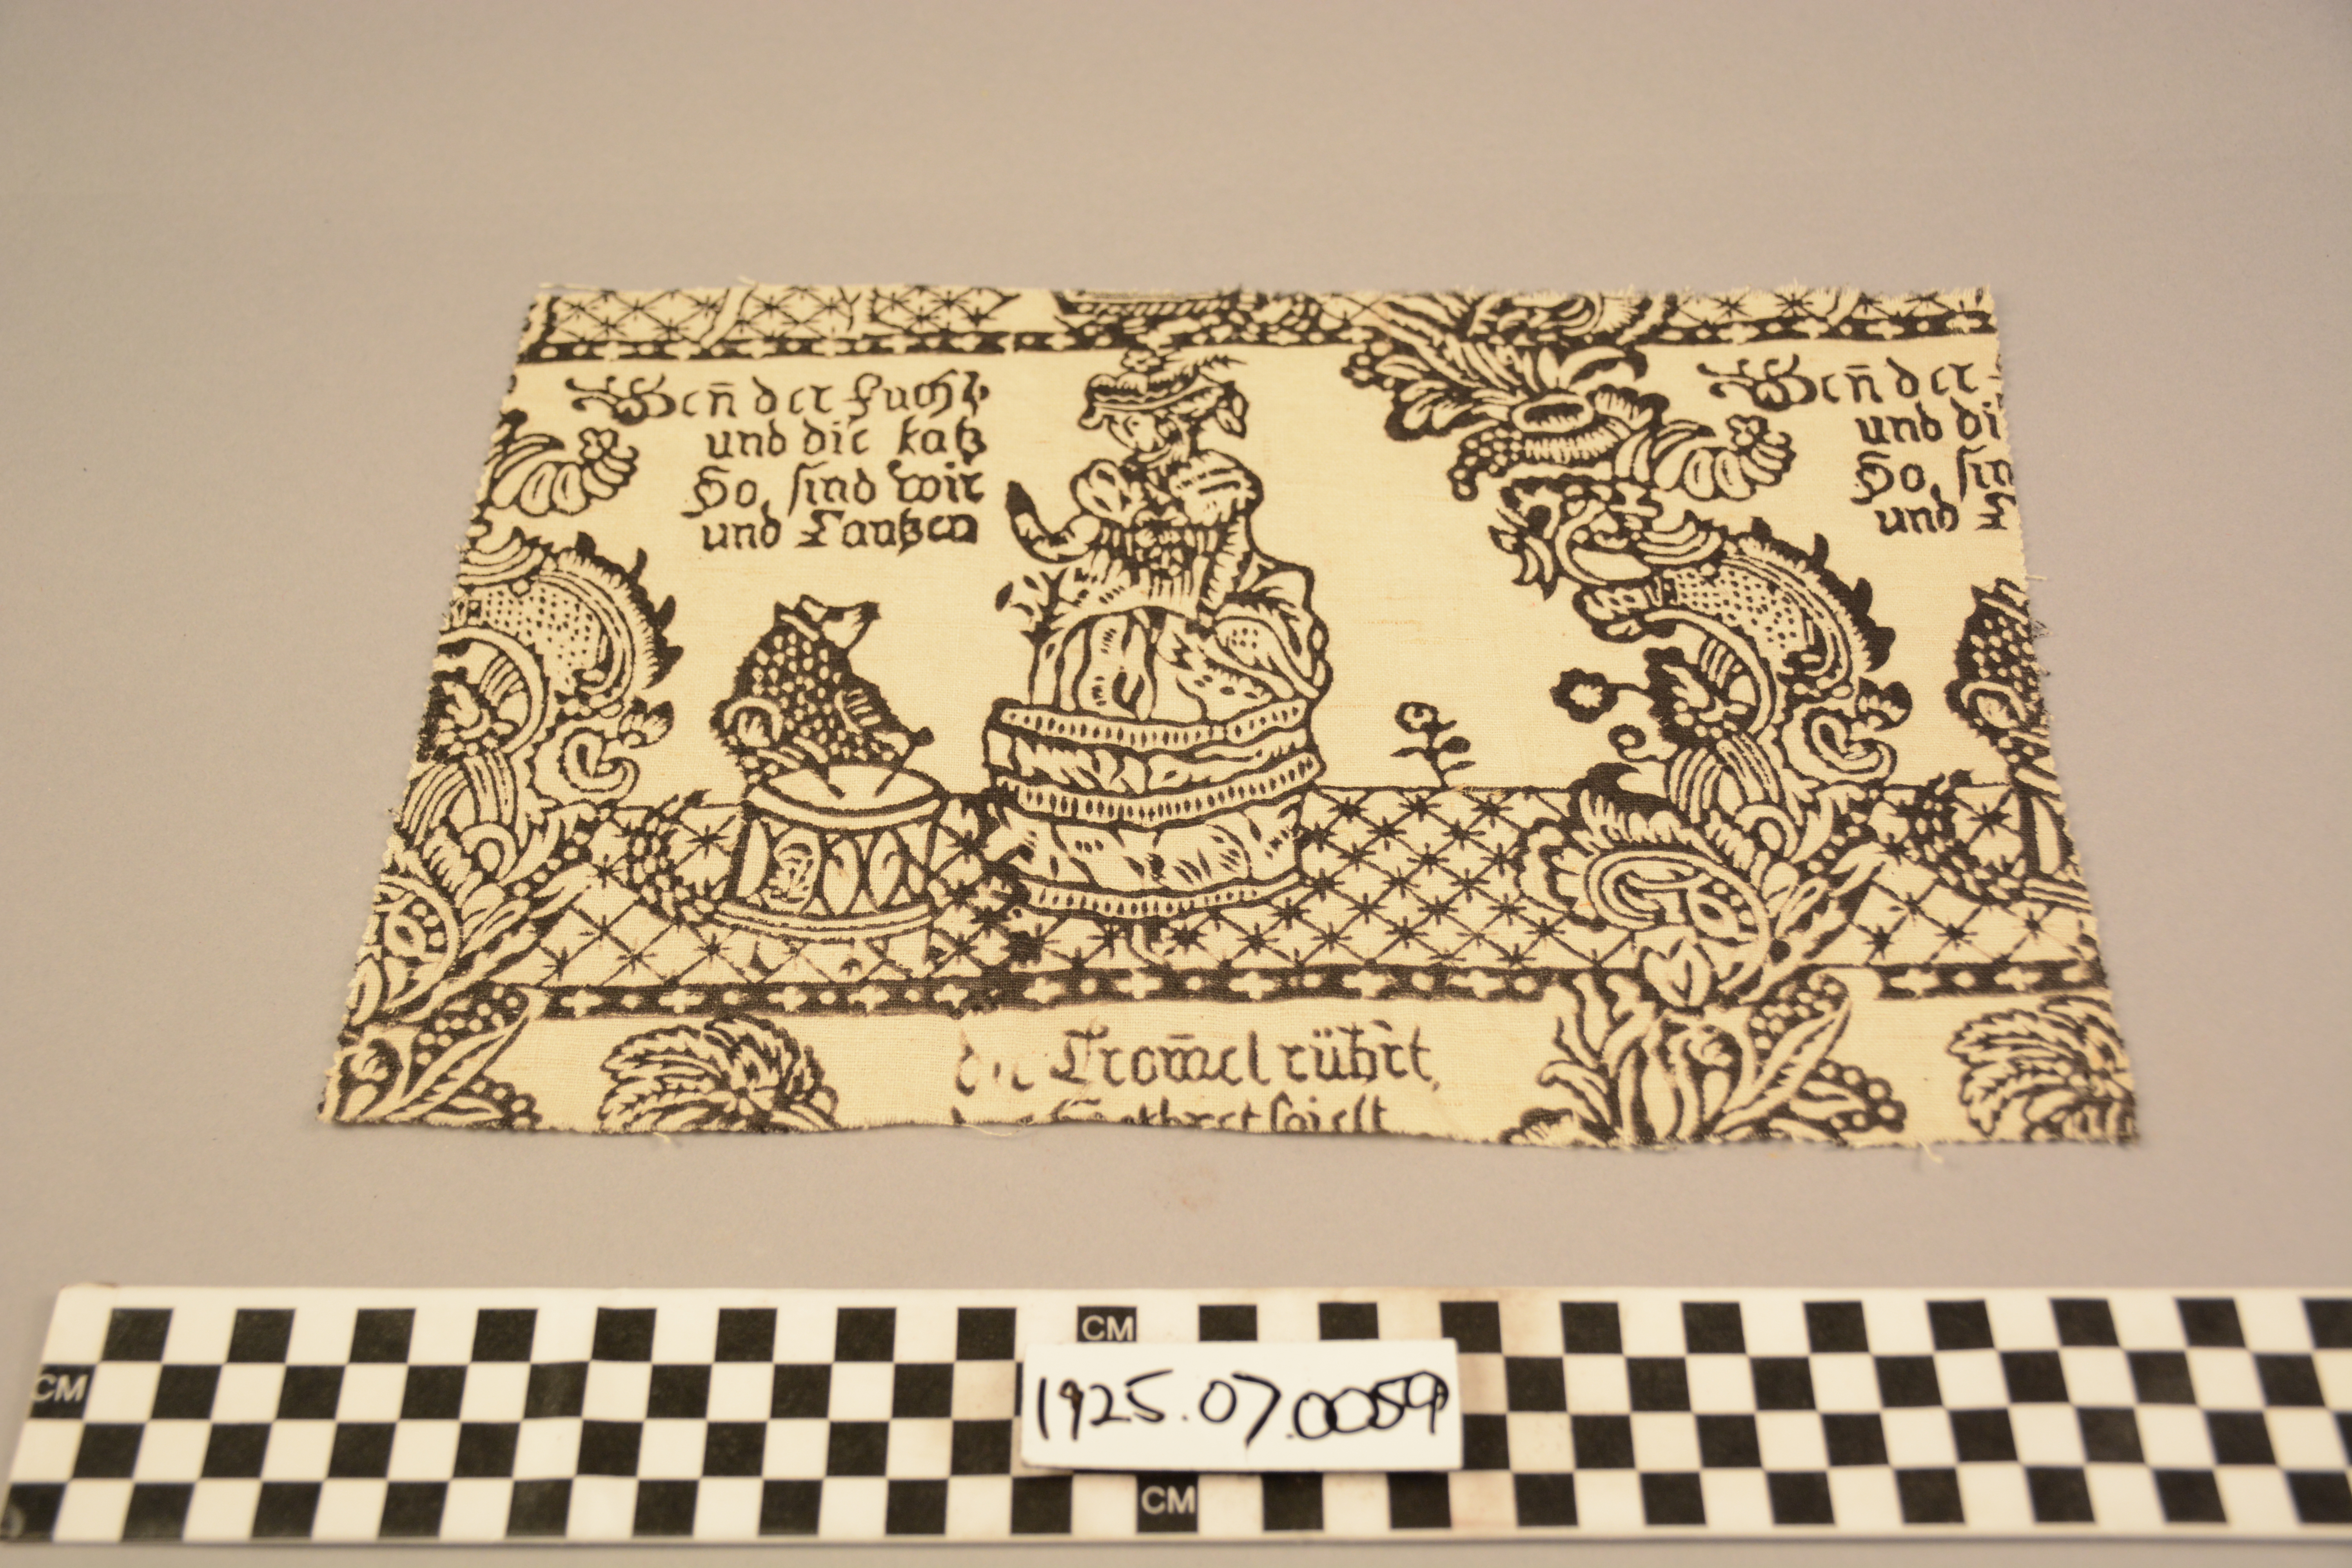 Wen̄ der fuchs
und die katz
So, sind wir
und Tantzen
Wen̄ der
und di
So, sin
und T
die Trom̄el rührt,
spielt
CM
CM
1925.07.0059
CM